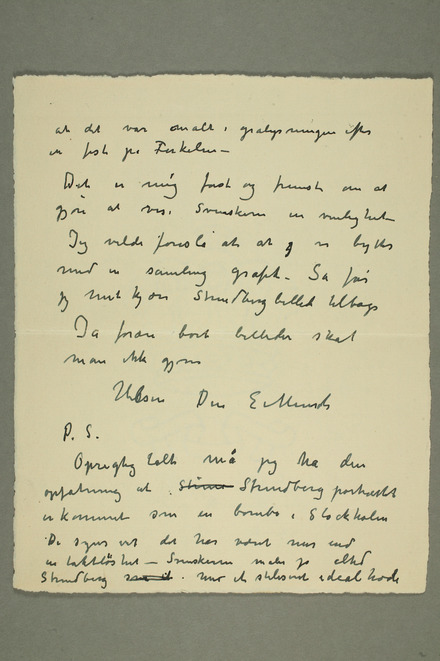 at det var malt i grålysningen efter
en fest på Ferkelen –
Det er mig først og fremst om at
gjøre at vise Svenskerne en venlighet
Jeg vilde foreslå at at jeg vi bytter
med en samling grafik – Så får
jeg mit kjære Strindbergbilled tilbage
Ja foræe bort billeder skal
man ikke gjøre
Hilsen Din E Munch
P. S.
Oprigtig talt må jeg ha den
opfatning at Strindberg portrættet
er kommet som en bombe i Stockholm
De synes vist det har været mer end
en taktløshet – Svenskerne maler jo altid
Strindberg med et stiliseret idealhode